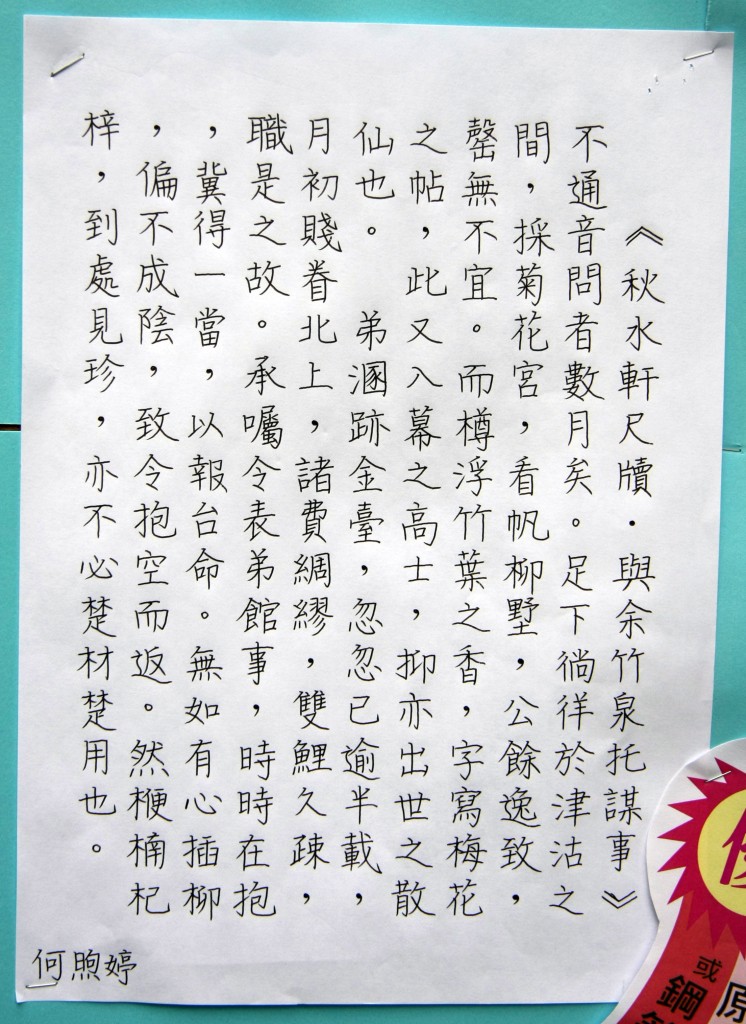 《秋水軒尺牘．與余竹泉托謀事》
不通音問者數月矣。足下徜徉於津沽之
間，採菊花宮，看帆柳墅，公餘逸致，
罄無不宜。而樽浮竹葉之香，字寫梅花
之帖，此又入幕之高士，抑亦出世之散
仙也。　弟溷跡金臺，忽忽已逾半載，
月初賤眷北上，諸費綢繆，雙鯉久疎，
職是之故。承囑令表弟館事，時時在抱
，冀得一當，以報台命。無如有心插柳
，偏不成陰，致令抱空而返。然楩楠杞
梓，到處見珍，亦不必楚材楚用也。
何煦婷
或
鋼
原